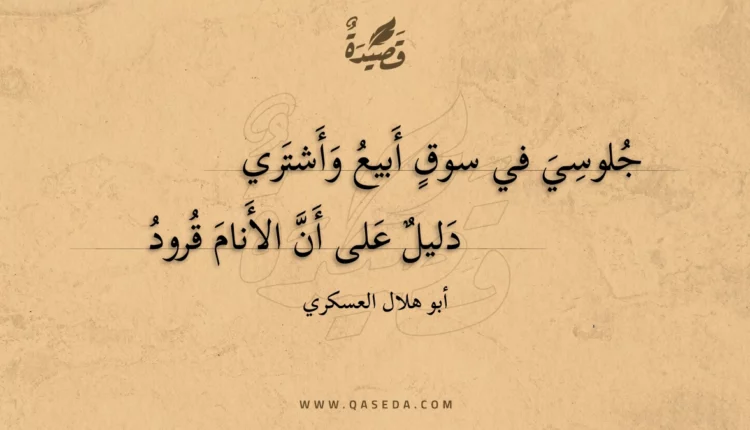 قَصِيدَةٌ
جُلوسِيَ في سوقٍ أَبيعُ وَأَشتَري
دَليلٌ عَلى أَنَّ الأَنامَ قُرودُ
أبو هلال العسكري
WWW.QASEDA.COM